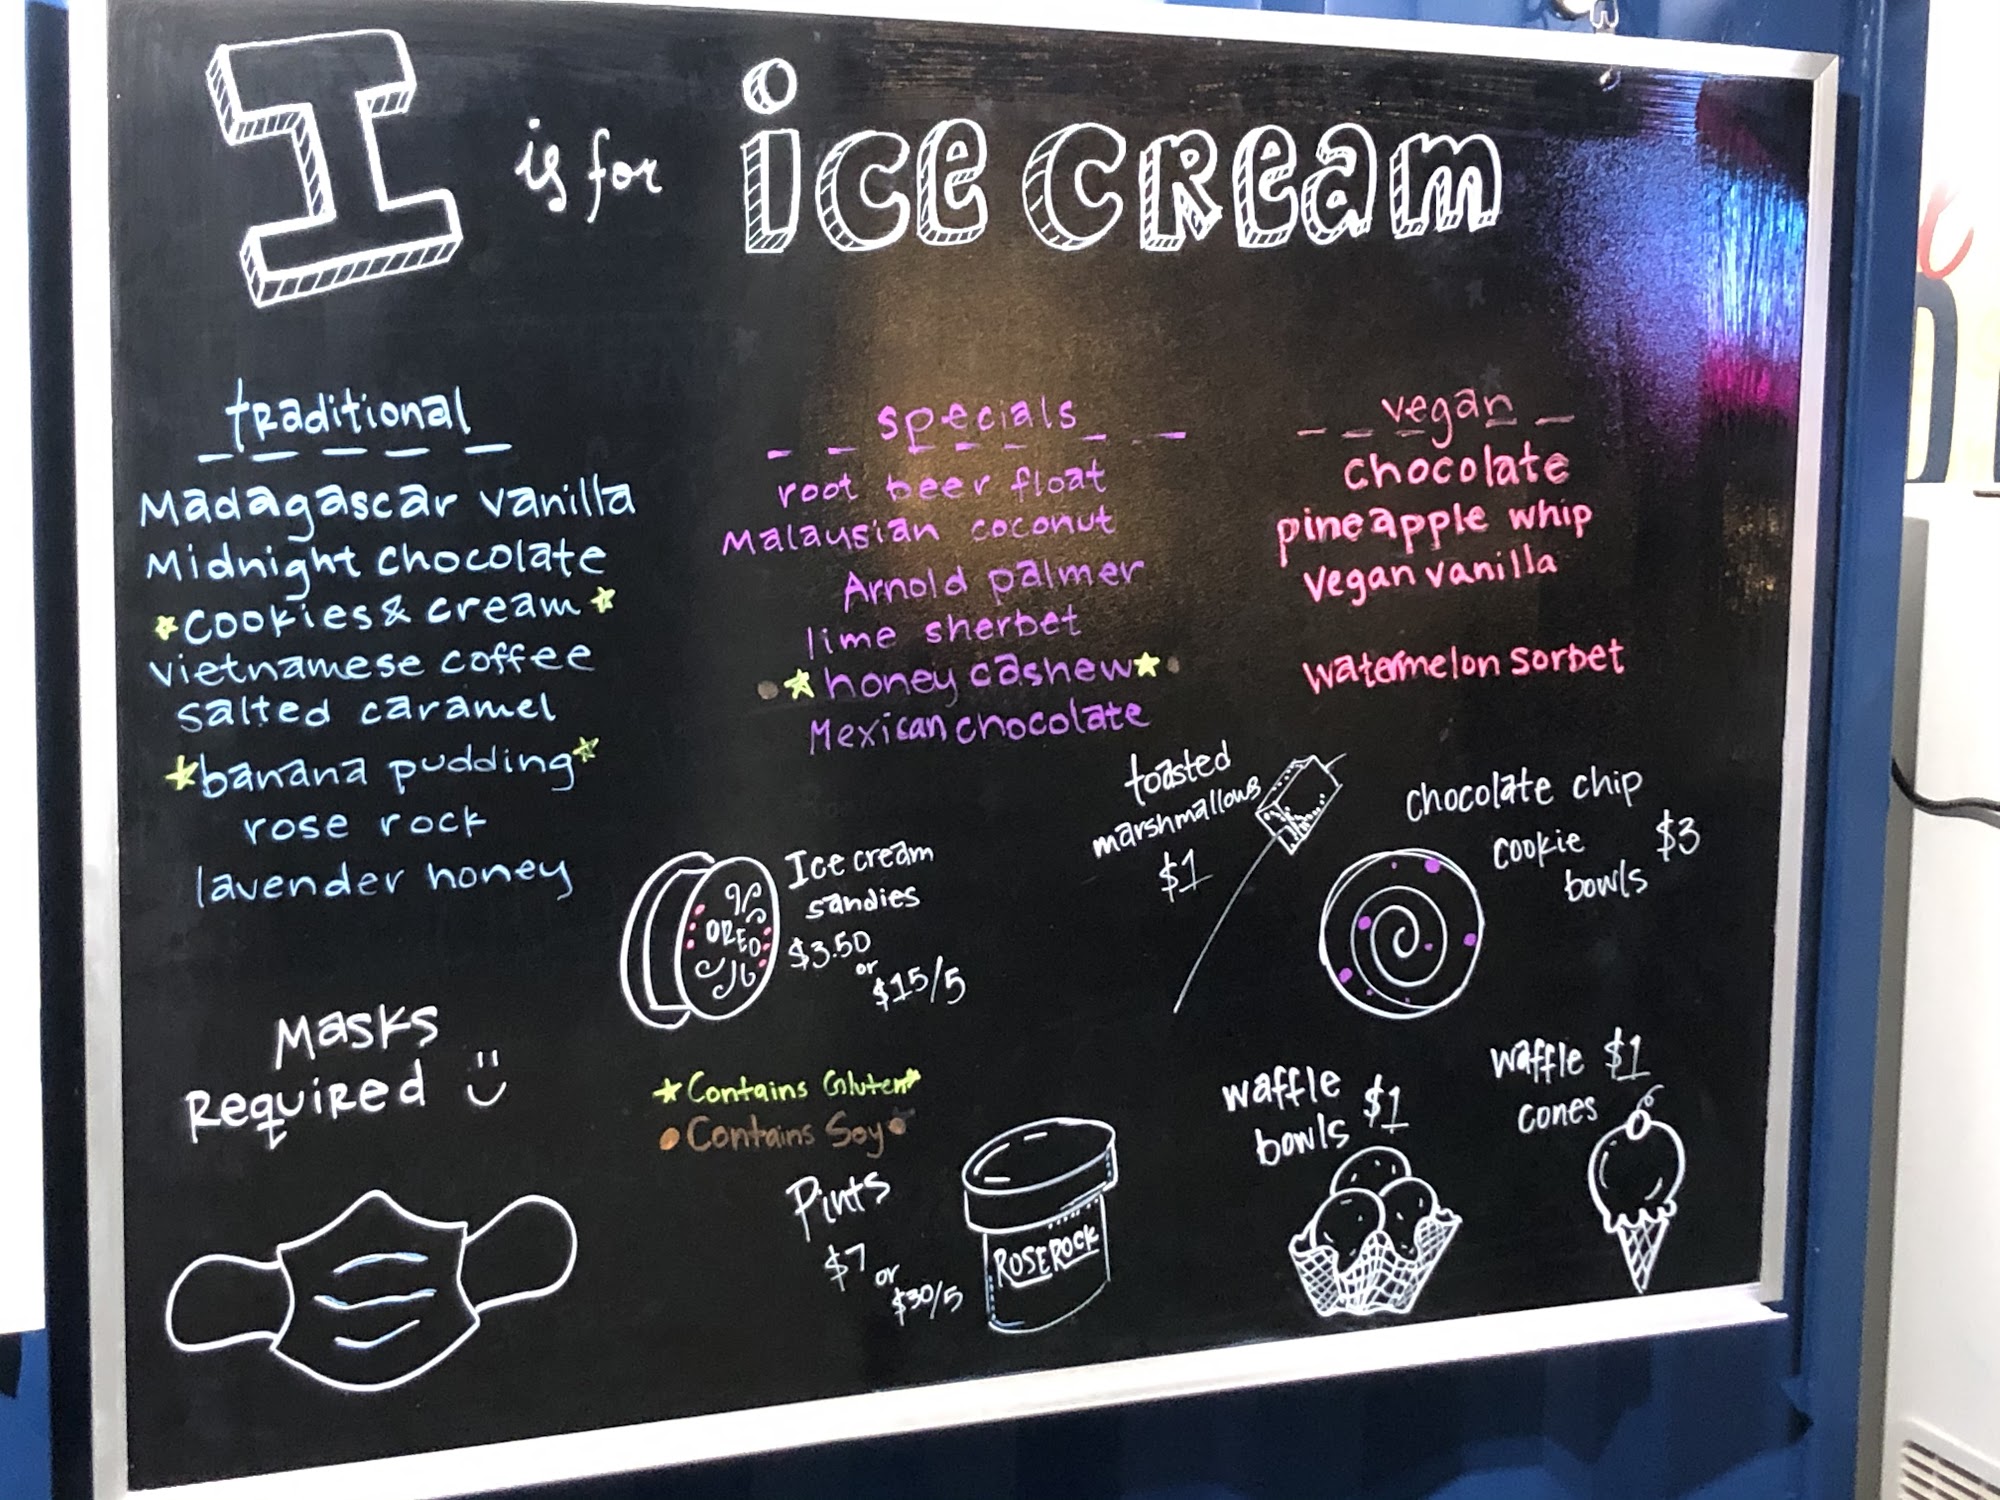 I is for ice cream
traditional
Madagascar vanilla
Midnight chocolate
cookies & cream
vietnamese coffee
salted caramel
banana pudding
rose rock
lavender honey
specials
root beer float
Malaysian coconut
Arnold palmer
lime sherbet
honey cashew
Mexican chocolate
vegan
chocolate
pineapple whip
vegan vanilla
watermelon sorbet
toasted
marshmallows
$1
chocolate chip
cookie
bowls
$3
OREO
Ice cream
sandies
$3.50
or
$15/5
Masks
Required
Contains Gluten
Contains Soy
Pints
$7
or
$30/5
ROSE ROCK
waffle
bowls $1
waffle $1
cones